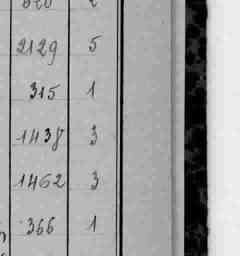 2129 5
315 1
1438 3
1462 3
366 1